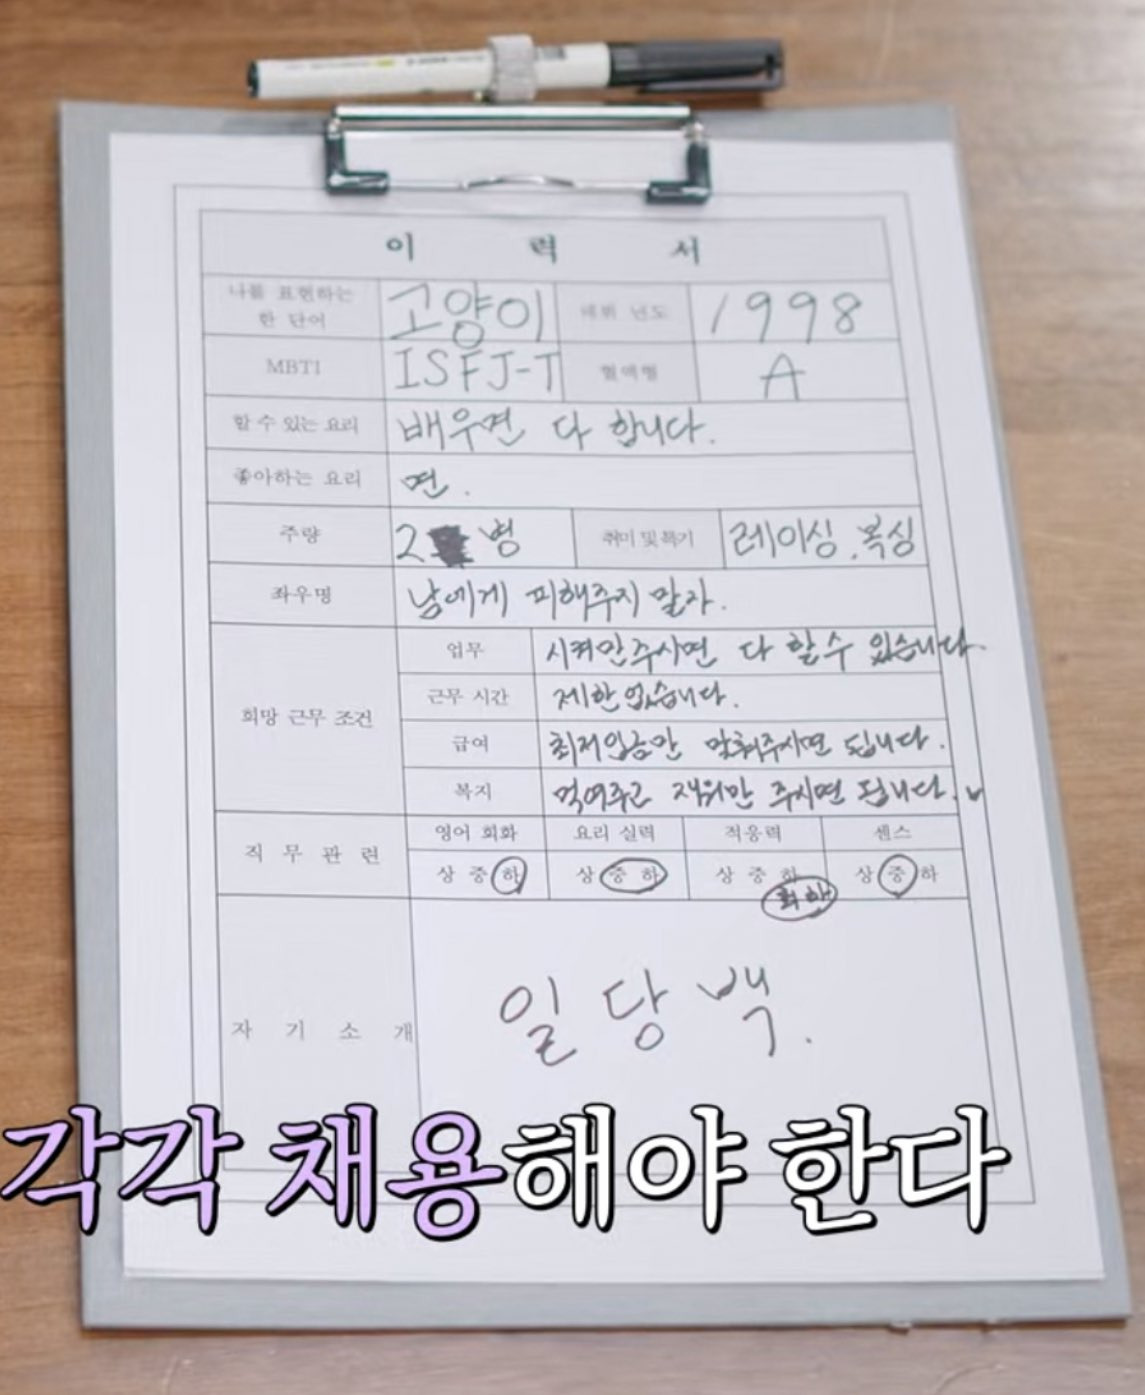 이 력 서
나를 표현하는 한 단어 고양이 데뷔 년도 1998
MBTI ISFJ-T 혈액형 A
할 수 있는 요리 배우면 다 합니다.
좋아하는 요리 면.
주량 2 병 취미 및 특기 레이싱. 복싱
좌우명 남에게 피해주지 말자.
희망 근무 조건
업무 시켜만주시면 다 할 수 있습니다.
근무 시간 제한 없습니다.
급여 최저임금만 맞춰주시면 됩니다.
복지 먹여주고 재워만 주시면 됩니다.
직 무 관 련
영어 회화 요리 실력 적응력 센스
상 중 하 상 중 하 상 중 하 상 중 하
자 기 소 개 일 당 백.
각각 채용해야 한다